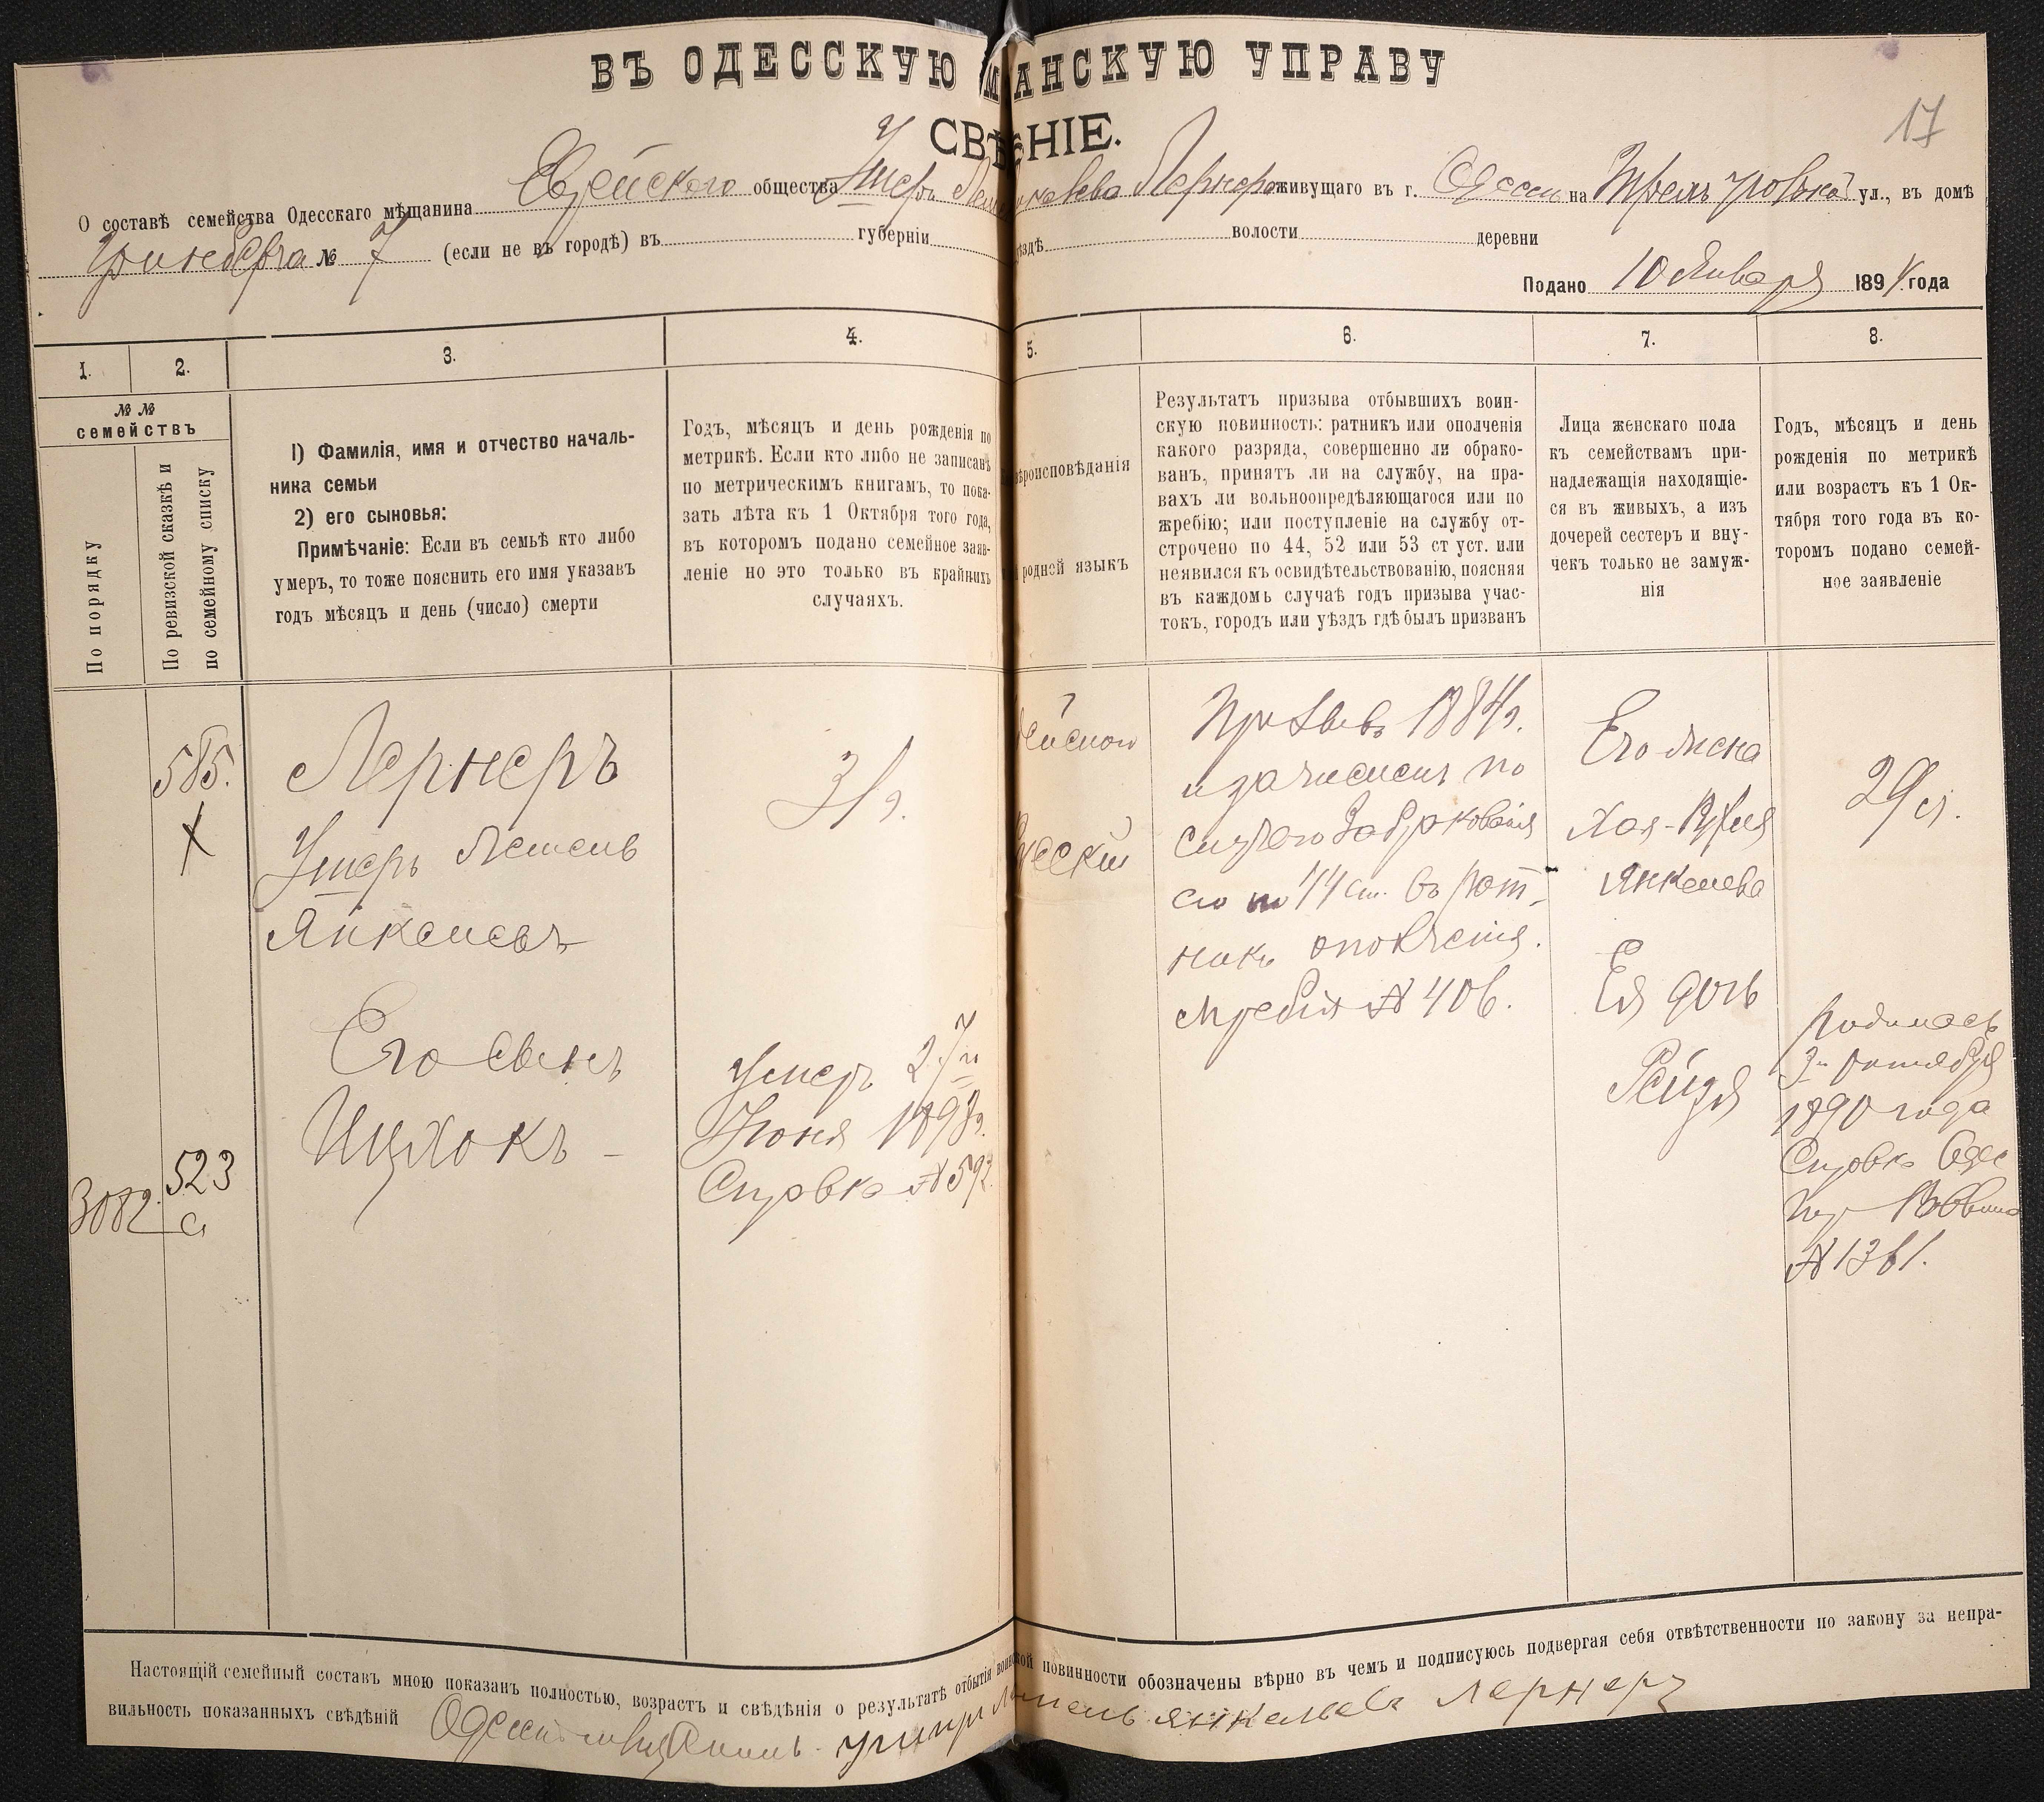 ВЪ ОДЕССКУЮ М АНСКУЮ УПРАВУ
СВѢ НІЕ.
17
О составѣ семейства Одесскаго мѣщанина Еврейскаго общества Ушеръ Лернера живущаго въ г. Одессѣ на ул., въ домѣ
Гринберга № 7 (если не въ городѣ) въ губерніи ѣздѣ волости деревни
Подано 10 Января 1894 года
1. 2. 3. 4. 5. 6. 7. 8.
№ №
семействъ
По порядку
По ревизской сказкѣ и
по семейному списку
1) Фамилія, имя и отчество началь-
ника семьи
2) его сыновья:
Примѣчаніе: Если въ семьѣ кто либо
умеръ, то тоже пояснить его имя указавъ
годъ мѣсяцъ и день (число) смерти
Годъ, мѣсяцъ и день рожденія по
метрикѣ. Если кто либо не записанъ
по метрическимъ книгамъ, то пока-
зать лѣта къ 1 Октября того года,
въ которомъ подано семейное заяв-
леніе но это только въ крайнихъ
случаяхъ.
ѣроисповѣданія
родной языкъ
Результатъ призыва отбывшихъ воин-
скую повинность: ратникъ или ополченія
какого разряда, совершенно ли обрако-
ванъ, принятъ ли на службу, на пра-
вахъ ли вольноопредѣляющагося или по
жребію; или поступленіе на службу от-
строчено по 44, 52 или 53 ст уст. или
неявился къ освидѣтельствованію, поясняя
въ каждомъ случаѣ годъ призыва учас-
токъ, городъ или уѣздъ гдѣ былъ призванъ
Лица женскаго пола
къ семействамъ при-
надлежащія находящіе-
ся въ живыхъ, а изъ
дочерей сестеръ и вну-
чекъ только не замуж-
нія
Годъ, мѣсяцъ и день
рожденія по метрикѣ
или возрастъ къ 1 Ок-
тября того года въ ко-
торомъ подано семей-
ное заявленіе
585.
X
Лернеръ
Ушеръ Лемель
Янкелевъ
31 г.
Его сынъ
Ицхокъ
3082
523
а
Умеръ 27го
Іюня 1893г.
Справка № 592
ейского
сскій
Призывъ 1884г.
и зачисленъ по
случаю забракованія
его по 44 ст. въ рат-
никъ ополченія.
жребія № 406.
Его жена
Хая-Рухля
Янкелева
29 л.
Ея дочь
Рейзя
Родилась
3го октября
1890 года
Справка Одес
№ 1361.
Настоящій семейный составъ мною показанъ полностью, возрастъ и свѣдѣнія о результатѣ отбытія воинской повинности обозначены вѣрно въ чемъ и подписуюсь подвергая себя отвѣтственности по закону за непра-
вильность показанныхъ свѣдѣній Янкелевъ Лернеръ